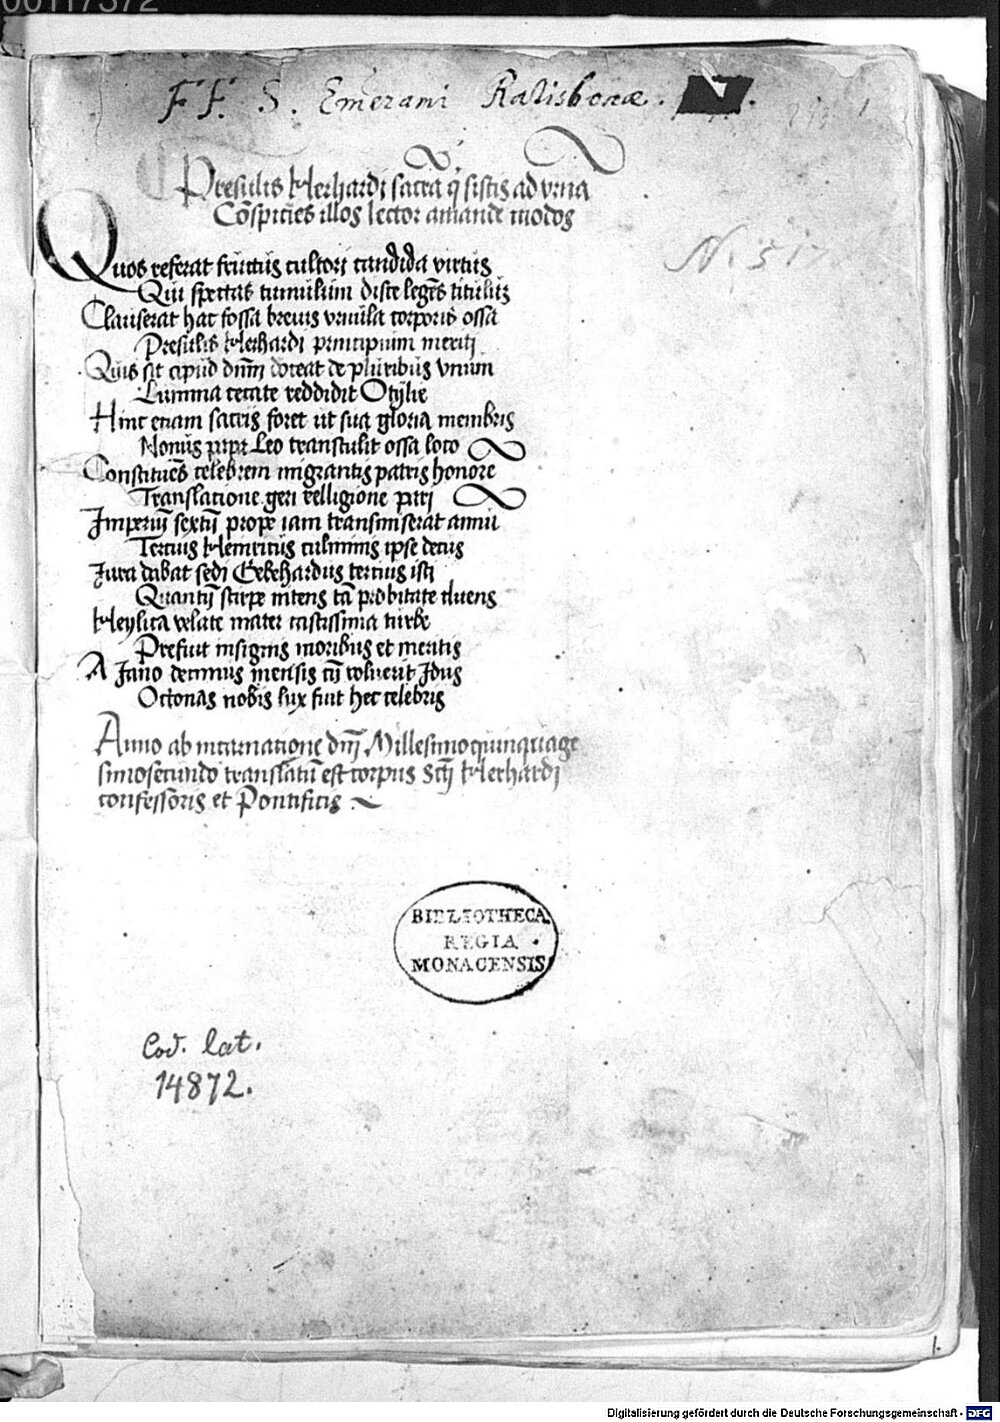 00117372
F F. S. Emerani Ratisbonæ.
Presulis Herhardi sacrā q̄ sistis ad vrnā
Cōspicies illos lector amande modos
Quos referat fructus cultori candida virtus
Qui spectas tumulum disce legēs titulūz
Clauserat hac fossa breuis vrnula corporis ossa
Presulis Herhardi principium meriti
Quis sit apud dnm̄ doceat de pluribus vnum
Lumina cecate reddidit Otylie
Hinc etiam sacris foret ut sua gloria membris
Nonus papa Leo transtulit ossa loco
Constituēs celebrem migrantis patris honore
Translatione geri relligione patri
Imperiū sextū prope iam transmiserat annū
Tercius Heinricus culminis ipse decus
Jura dabat sedi Gebehardus tercius isti
Quantū stirpe nitens tā probitate cluens
Heylica velate mater castissima turbe
Prefuit insignis moribus et meritis
A Jano decimus mensis cū volueret Idus
Octonas nobis lux fuit hec celebris
Anno ab incarnatione dnī Millesimoquinquage
simosecundo translatū est corpus Sctī Herhardi
confessoris et Pontificis
N. 517
BIBLIOTHECA
REGIA
MONACENSIS
Cod. lat.
14872.
1.
Digitalisierung gefördert durch die Deutsche Forschungsgemeinschaft - DFG